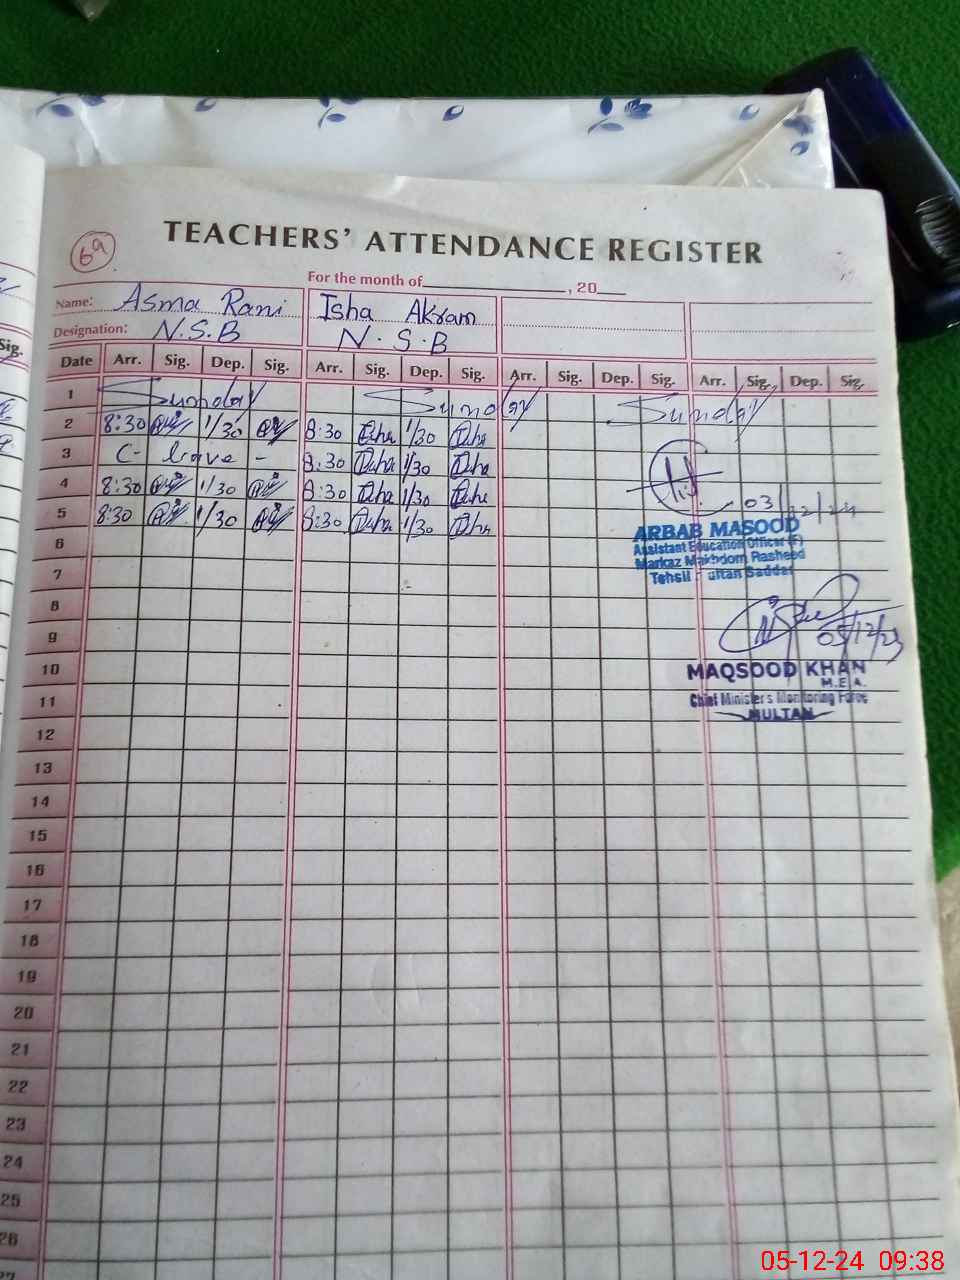 TEACHERS' ATTENDANCE REGISTER
6a
For the month of , 20
Name: Asma Rani Isha Akram
Designation: N.S.B N.S.B
Sig.
Date Arr. Sig. Dep. Sig. Arr. Sig. Dep. Sig. Arr. Sig. Dep. Sig. Arr. Sig. Dep. Sig.
1 Sunday Sunday Sunday
2 8:30 1/30 8:30 1/30
3 C- leave - 8:30 1/30
4 8:30 1/30 8:30 1/30
5 8:30 1/30 8:30 1/30
03/12/24
ARBAB MASOOD
Assistant Education Officer (F)
Markaz Makhdom Rasheed
Tehsil Multan Saddar
6
7
8
9
10
MAQSOOD KHAN
M.E.A.
Chief Minister's Monitoring Force
MULTAN
11
12
13
14
15
16
17
18
19
20
21
22
23
24
25
26
27
05-12-24 09:38